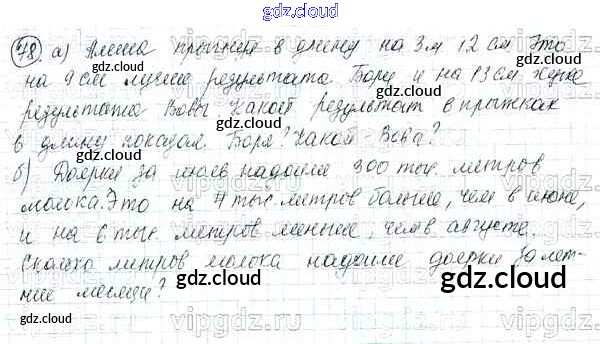 gdz.cloud
78. а) Алеша прыгнул в длину на 3 м 12 см Это
на 9 см лучше результата Бори и на 13 см хуже
результата Вовы. Какой результат в прыжках
в длину показал Боря? Какой Вова?
б) Доярки за июль надоили 300 тыс. метров
молока. Это на 7 тыс. метров больше, чем в июне,
и на 6 тыс. метров меньше, чем в августе.
Сколько литров молока надоили доярки за лет-
ние месяцы?
gdz.cloud
gdz.cloud
gdz.cloud
gdz.cloud
gdz.cloud
gdz.cloud
gdz.cloud
gdz.cloud
gdz.cloud